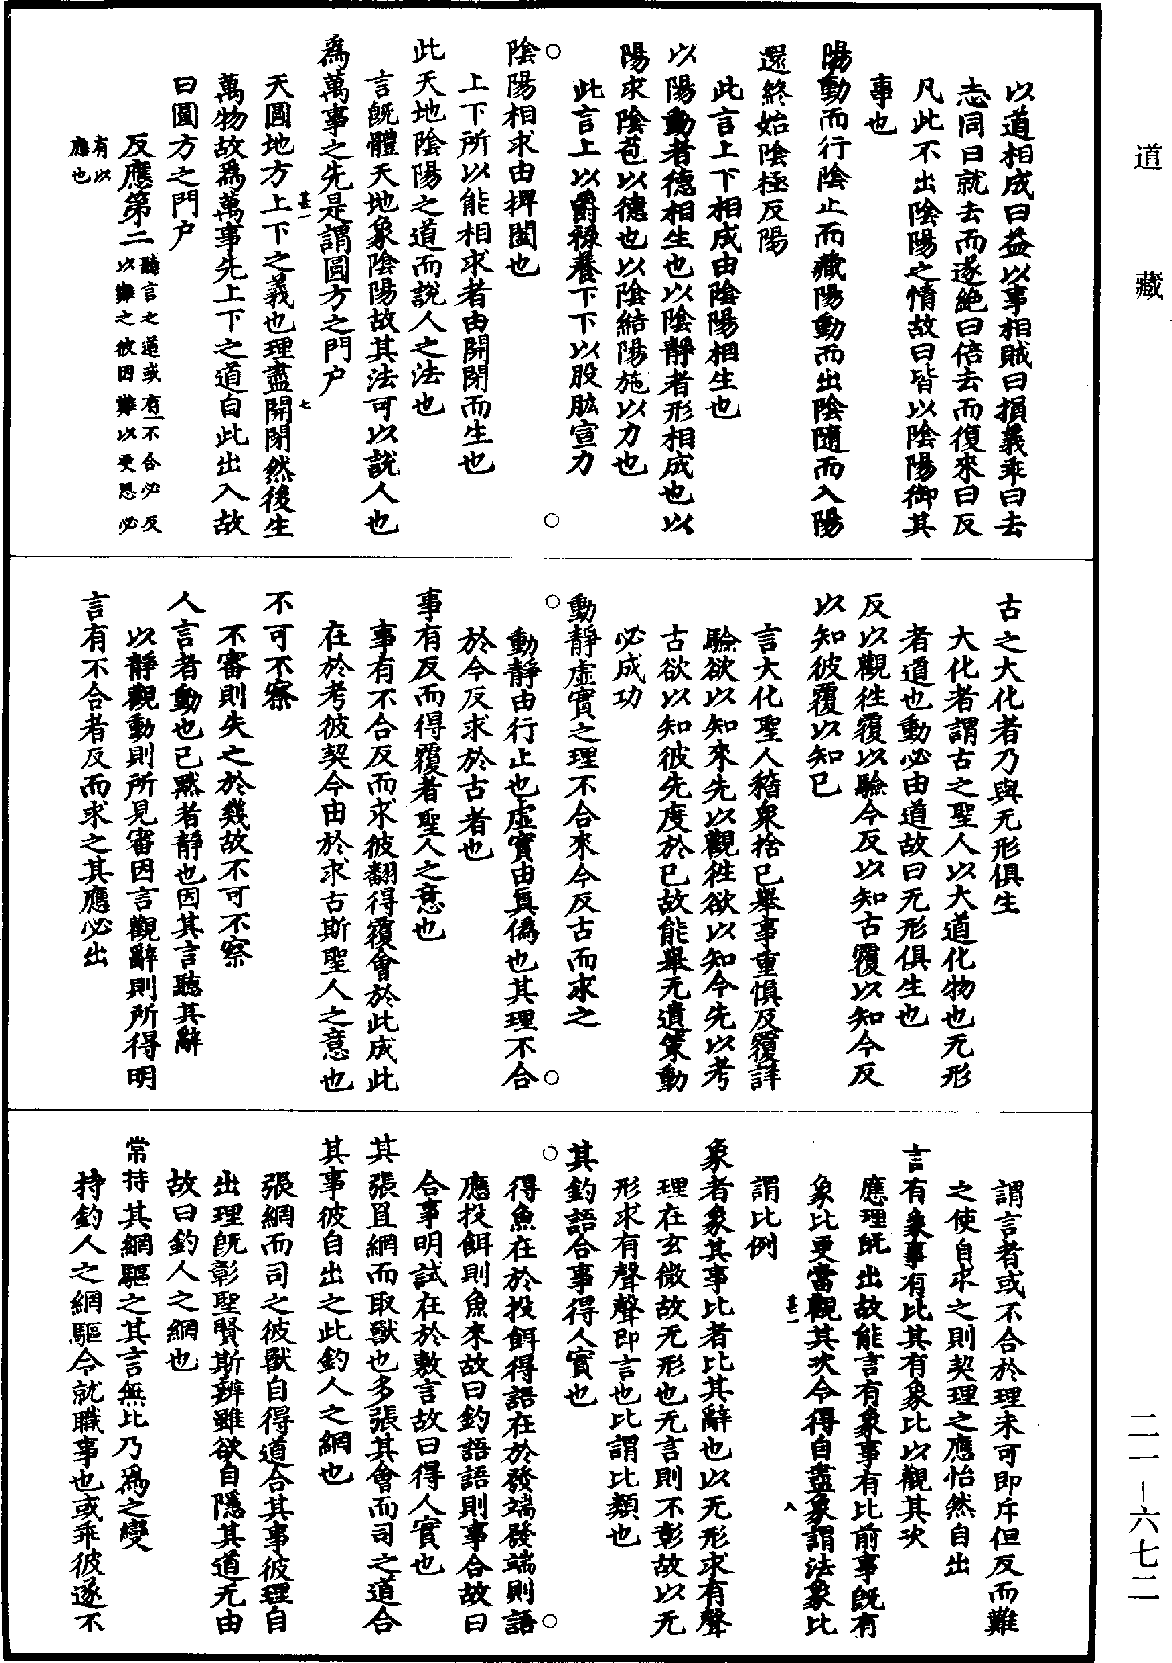 道藏
以道相成曰益以事相賊曰損義乖曰去
志同曰就去而遂絶曰倍去而復來曰反
凡此不出陰陽之情故曰皆以陰陽御其
事也
陽動而行陰止而藏陽動而出陰隨而入陽
還終始陰極反陽
此言上下相成由陰陽相生也
以陽動者德相生也以陰靜者形相成也以
陽求陰苞以德也以陰結陽施以力也
此言上以爵祿養下下以股肱宣力
陰陽相求由捭闔也
上下所以能相求者由開閉而生也
此天地陰陽之道而說人之法也
言旣體天地象陰陽故其法可以說人也
爲萬事之先是謂圓方之門户
天圓地方上下之義也理盡開閉然後生
萬物故爲萬事先上下之道自此出入故
曰圓方之門户
反應第二
聽言之道或有不合必反
以難之彼因難以更思必
有以
應也
古之大化者乃與无形俱生
大化者謂古之聖人以大道化物也无形
者道也動必由道故曰无形俱生也
反以觀徃覆以驗今反以知古覆以知今反
以知彼覆以知已
言大化聖人稽衆捨已舉事重慎反覆詳
驗欲以知來先以觀徃欲以知今先以考
古欲以知彼先度於已故能舉无遺策動
必成功
動靜虚實之理不合來今反古而求之
動靜由行止也虚實由真僞也其理不合
於今反求於古者也
事有反而得覆者聖人之意也
事有不合反而求彼翻得覆會於此成此
在於考彼契今由於求古斯聖人之意也
不可不察
不審則失之於幾故不可不察
人言者動也已黙者靜也因其言聽其辭
以靜觀動則所見審因言觀辭則所得明
言有不合者反而求之其應必出
謂言者或不合於理未可即斥但反而難
之使自求之則契理之應怡然自出
言有象事有比其有象比以觀其次
應理旣出故能言有象事有比前事旣有
象比更當觀其次令得自盡象謂法象比
謂比例
象者象其事比者比其辭也以无形求有聲
理在玄微故无形也无言則不彰故以无
形求有聲聲即言也比謂比類也
其釣語合事得人實也
得魚在於投餌得語在於發端發端則語
應投餌則魚來故曰釣語語則事合故曰
合事明試在於敷言故曰得人實也
其張罝網而取獸也多張其會而司之道合
其事彼自出之此釣人之網也
張網而司之彼獸自得道合其事彼理自
出理旣彰聖賢斯辨雖欲自隱其道无由
故曰釣人之網也
常持其網驅之其言無比乃爲之變
持釣人之網驅令就職事也或乖彼遂不
二一－六七二